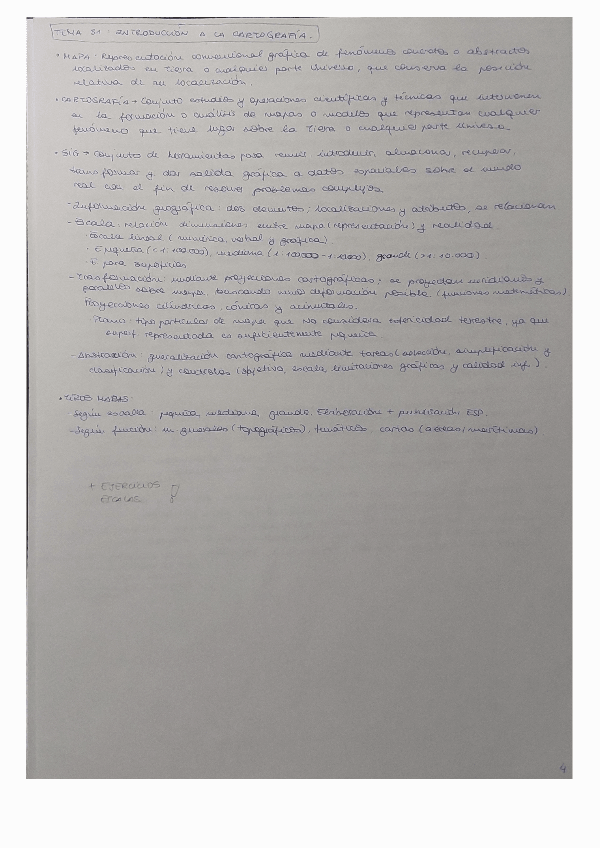 TEMA 31: INTRODUCCION A LA CARTOGRAFÍA.
• MAPA: Representación convencional gráfica de fenómenos concretos o abstractos
localizados en Tierra o cualquier parte Universo, que conserva la posición
relativa de su localización.
• CARTOGRAFÍA → Conjunto estudios y operaciones científicas y técnicas que intervienen
en la formación o análisis de mapas o modelos que representan cualquier
fenómeno que tiene lugar sobre la Tierra o cualquier parte Universo.
• SIG → Conjunto de herramientas para reunir, introducir, almacenar, recuperar,
transformar y dar salida gráfica a datos espaciales sobre el mundo
real con el fin de resolver problemas complejos
- Información geográfica: dos elementos: localizaciones y atributos, se relacionan
- Escala: relación dimensiones entre mapa (representación) y realidad.
· Escala lineal (numérica, verbal y gráfica)
· Pequeña (<1:100000), mediana (1:100000 - 1:10000), grande (>1:10.000)
para superficies
- Trasformación mediante proyecciones cartográficas: se proyectan meridianos y
paralelos sobre mapa, buscando menor deformación posible (funciones matemáticas)
Proyecciones cilíndricas, cónicas y acimutales.
Plano: tipo particular de mapa que NO considera esfericidad terrestre, ya que
superf representada es suficientemente pequeña
- Abstracción: generalización cartográfica mediante tareas (selección, simplificación y
clasificación) y controles (objetivo, escala, limitaciones gráficas y calidad inf.).
• TIPOS MAPAS:
- Según escala: pequeña, mediana, grande. ESP.
- Según función: generales (topográficos), temáticos, cartas (aéreas/marítimas)
+ EJERCICIOS
ESCALAS
4